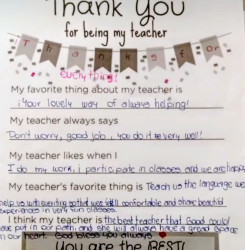 Thank You
for being my teacher
Thanks for
everything!
My favorite thing about my teacher is
your lovely way of always helping!
My teacher always says
Don't worry, good job, you do it very well!
My teacher likes when I
I do my work, i participate in classes and we are happy
My teacher's favorite thing is Teach us the language we
help us with everything so that we feel comfortable and share beautiful
experiences in very fun classes.
I think my teacher is the best teacher that God could
have put in our path, and she will always have a great space
in our heart. God bless you always
You are the BEST!